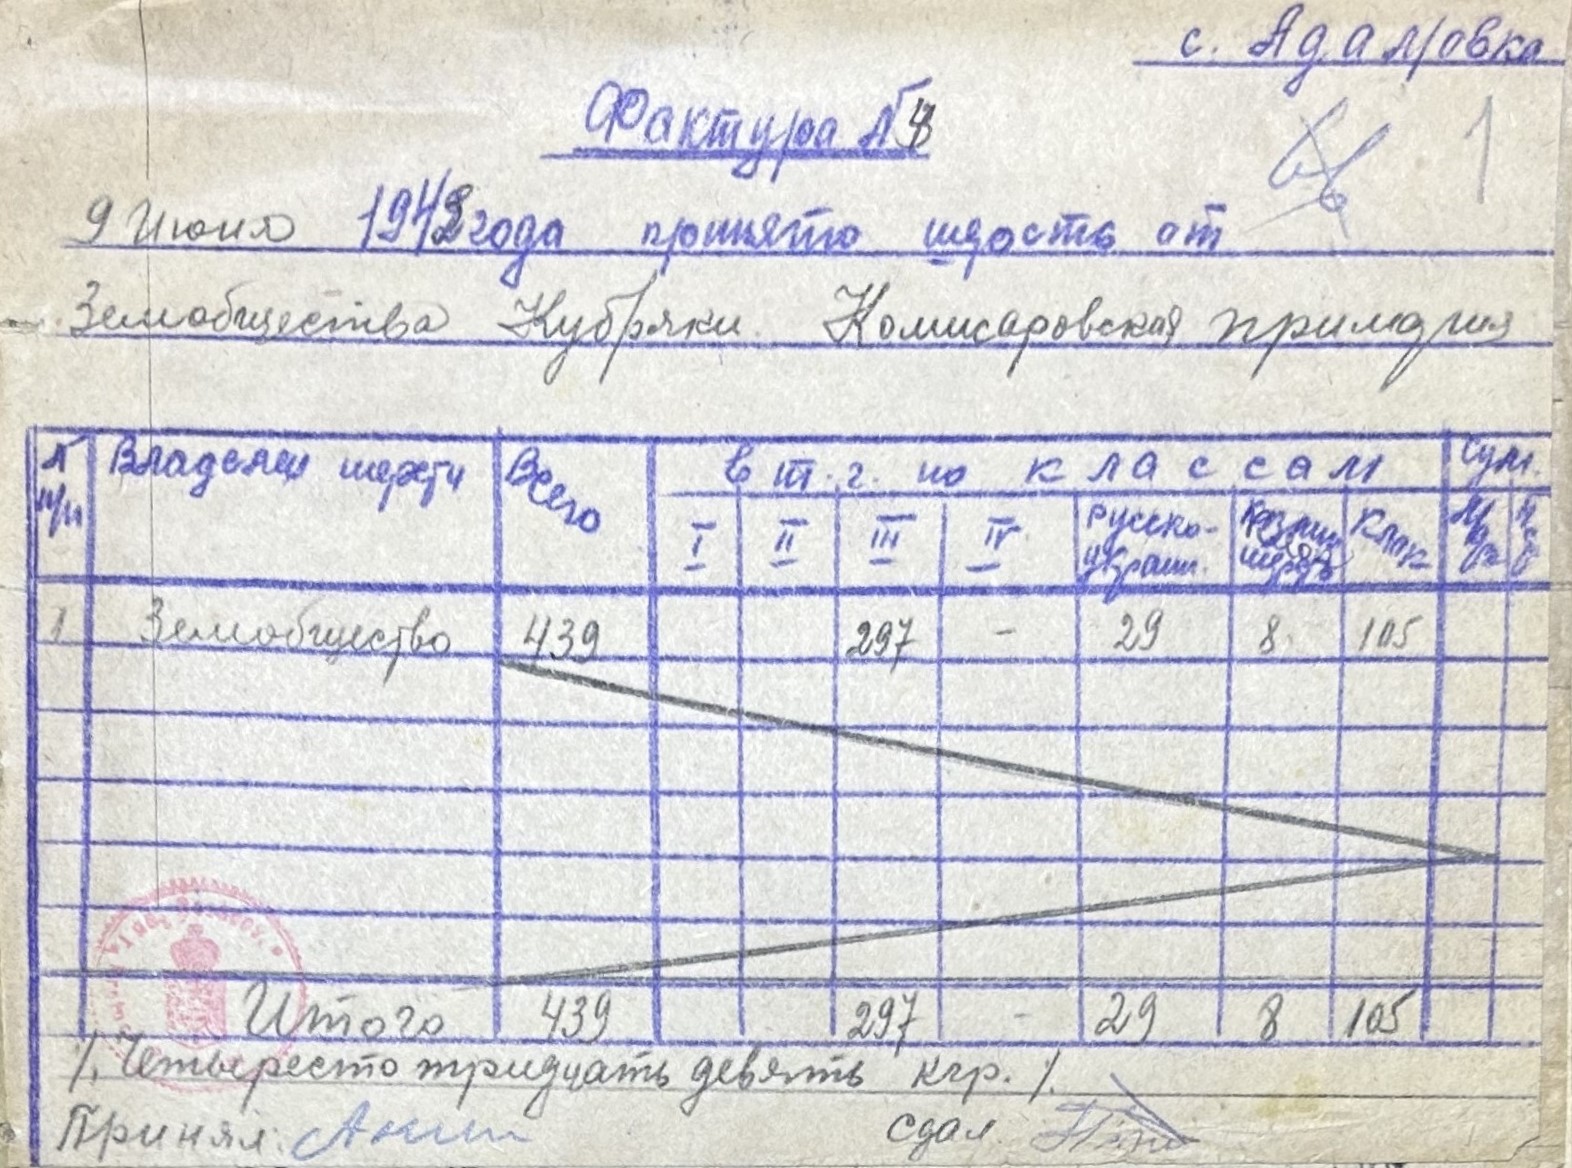 с. Адамовка
Фактура №
1
9 Июня 1942 года принято шерсть от
Землобщества Кубряки. Комисаровская примария
№ п/п Владелец шерсти Всего в т. г. по классам Сум.
I II III IV Русско-украин. Клак
1 Землобщество 439 297 – 29 8 105
Итого 439 297 - 29 8 105
/. Четыресто тридцать девять кгр. /.
Принял: сдал